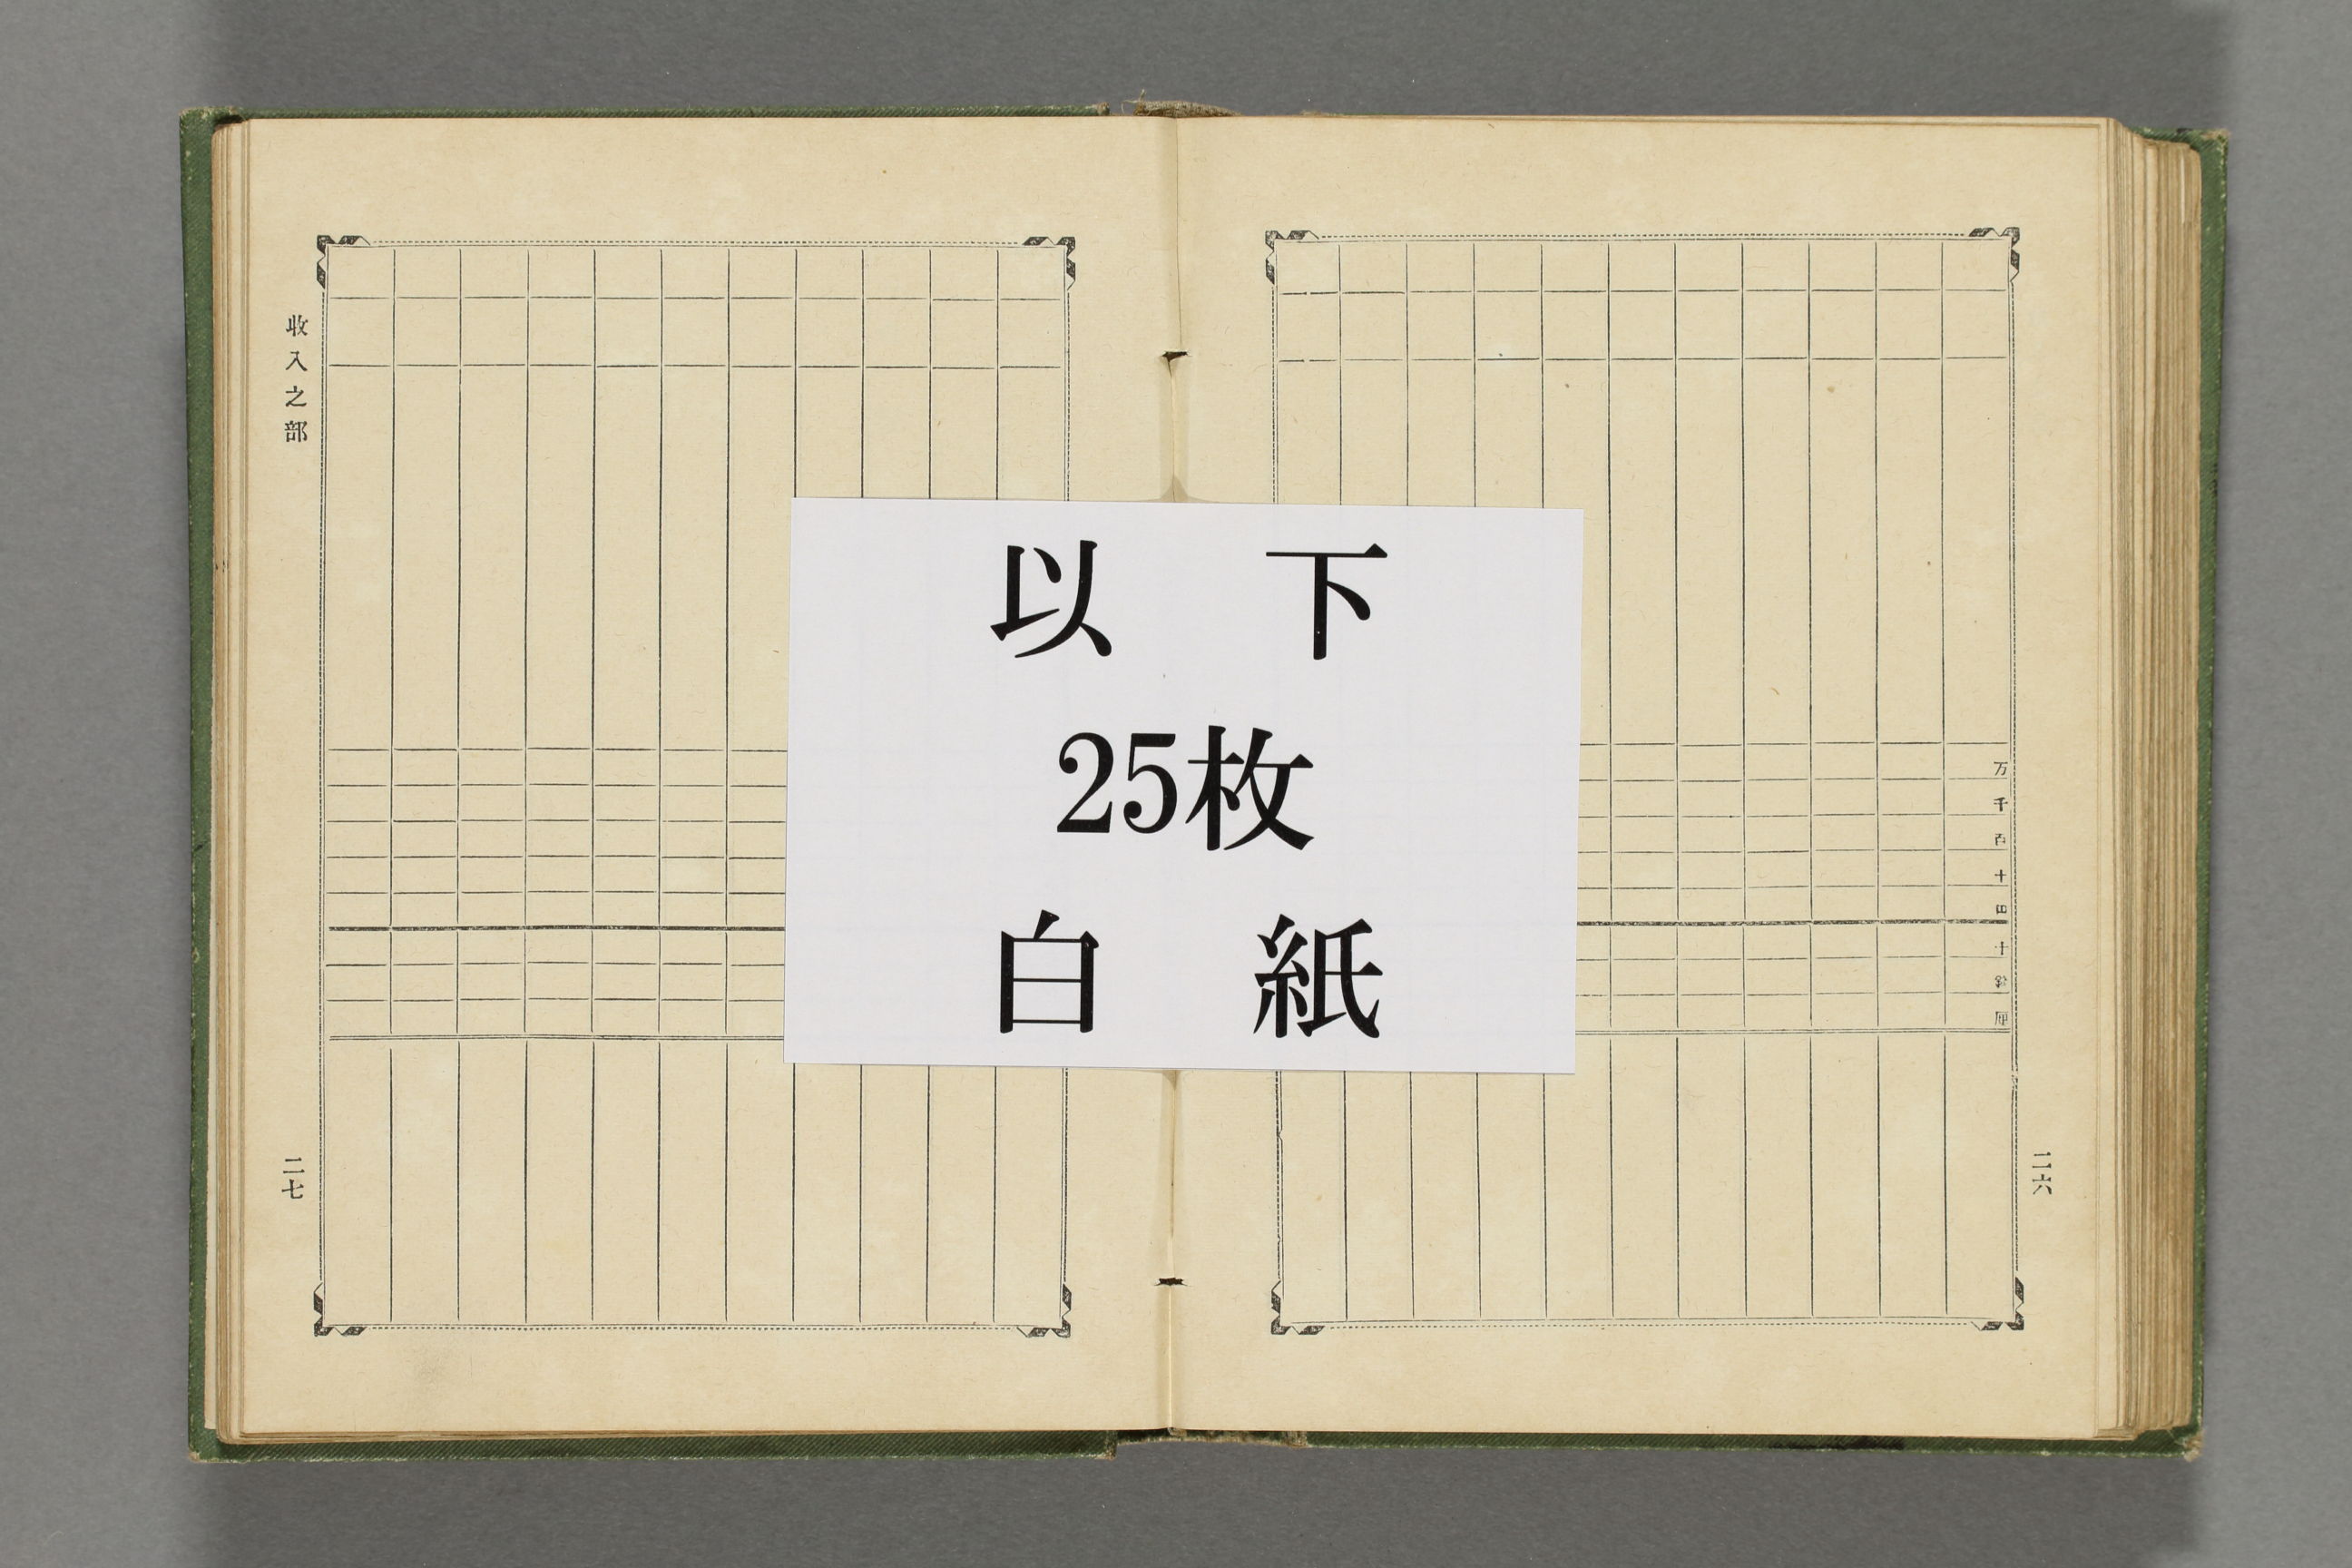 以下
25枚
白紙
万千百十円十銭厘
二六
収入之部
二七